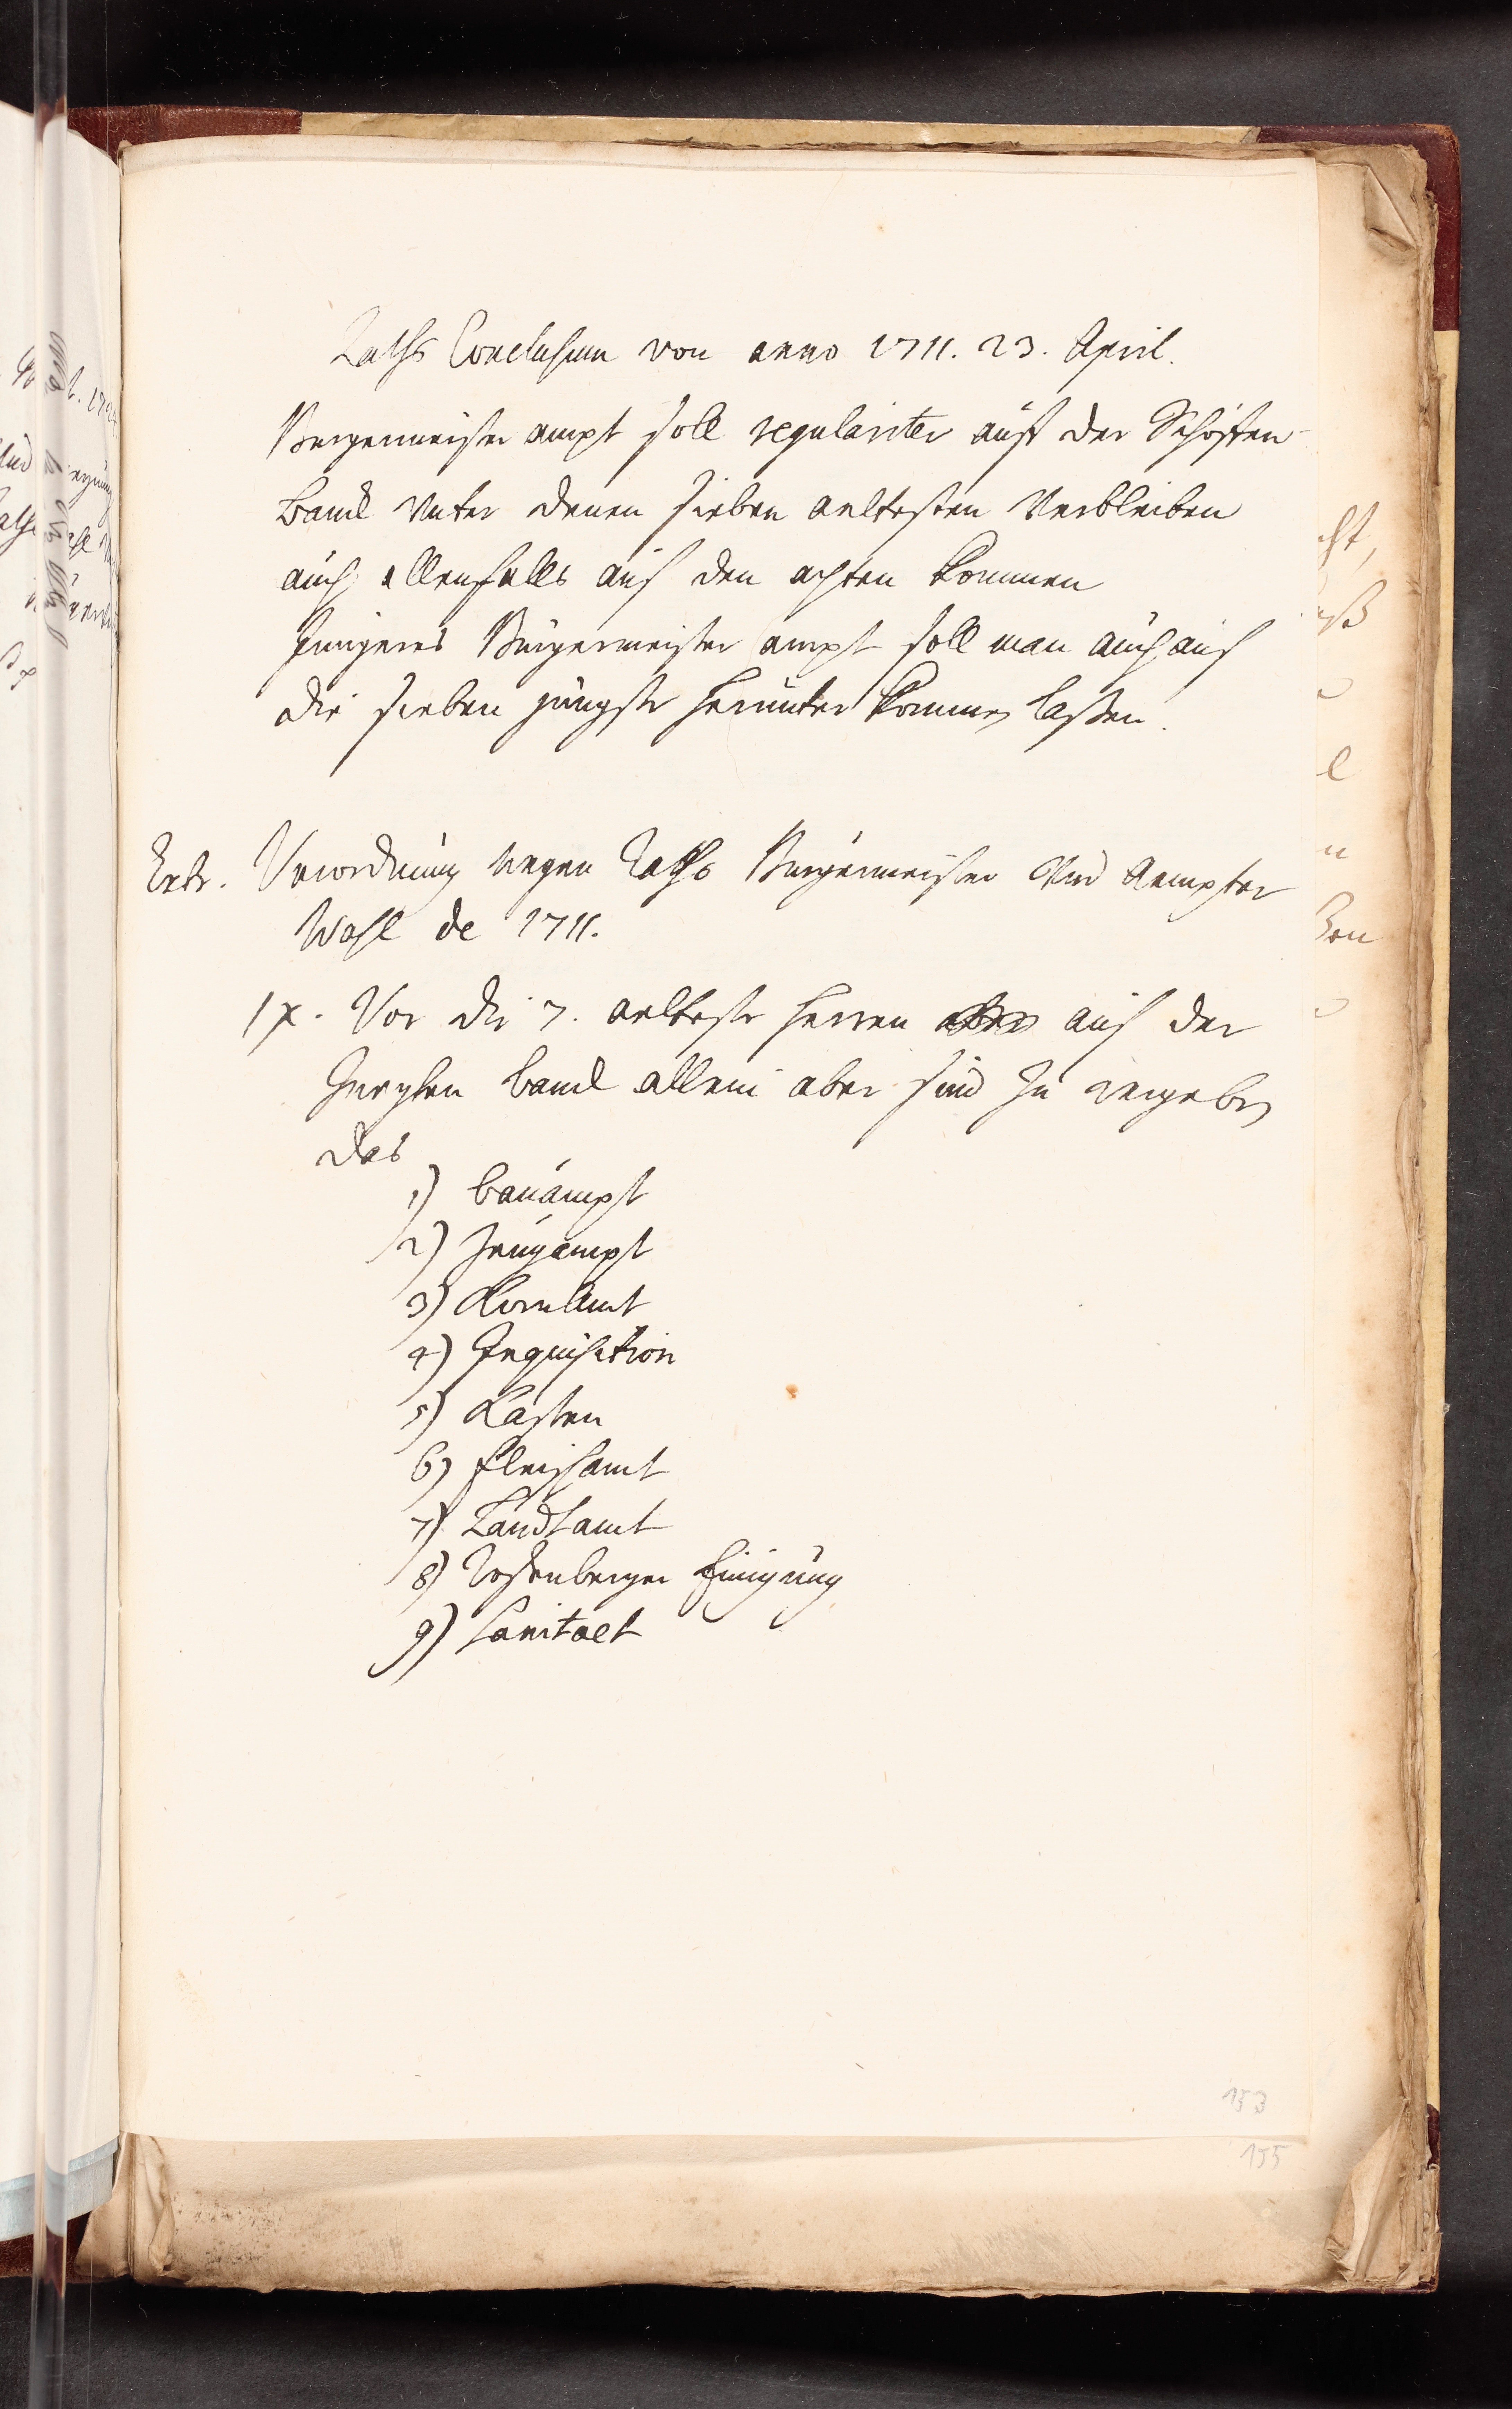 Raths Conclusum von anno 1711. 23. April.
Burgermeister ampt soll regulariter auff der Schöffen
banck unter denen sieben aeltesten Verbleiben
auch allenfalls auf den achten kommen
Jüngeres Burgermeister ampt soll man auch auf
die sieben jüngste herunter kommen lassen.
Extr. Verordnung wegen Raths Burgermeister Und Aempter
Wahl de 1711.
Vor die 7. aelteste Herren auf der
banck allein aber sind zu vergeben
das
1) bauampt
2) Zeugampt
3) KornAmt
4) Inquisition
5) Kasten
6) fleischamt
7) Landtamt
8) Rosenberger Einigung
9) Sanitaet
153
155
cht,
l